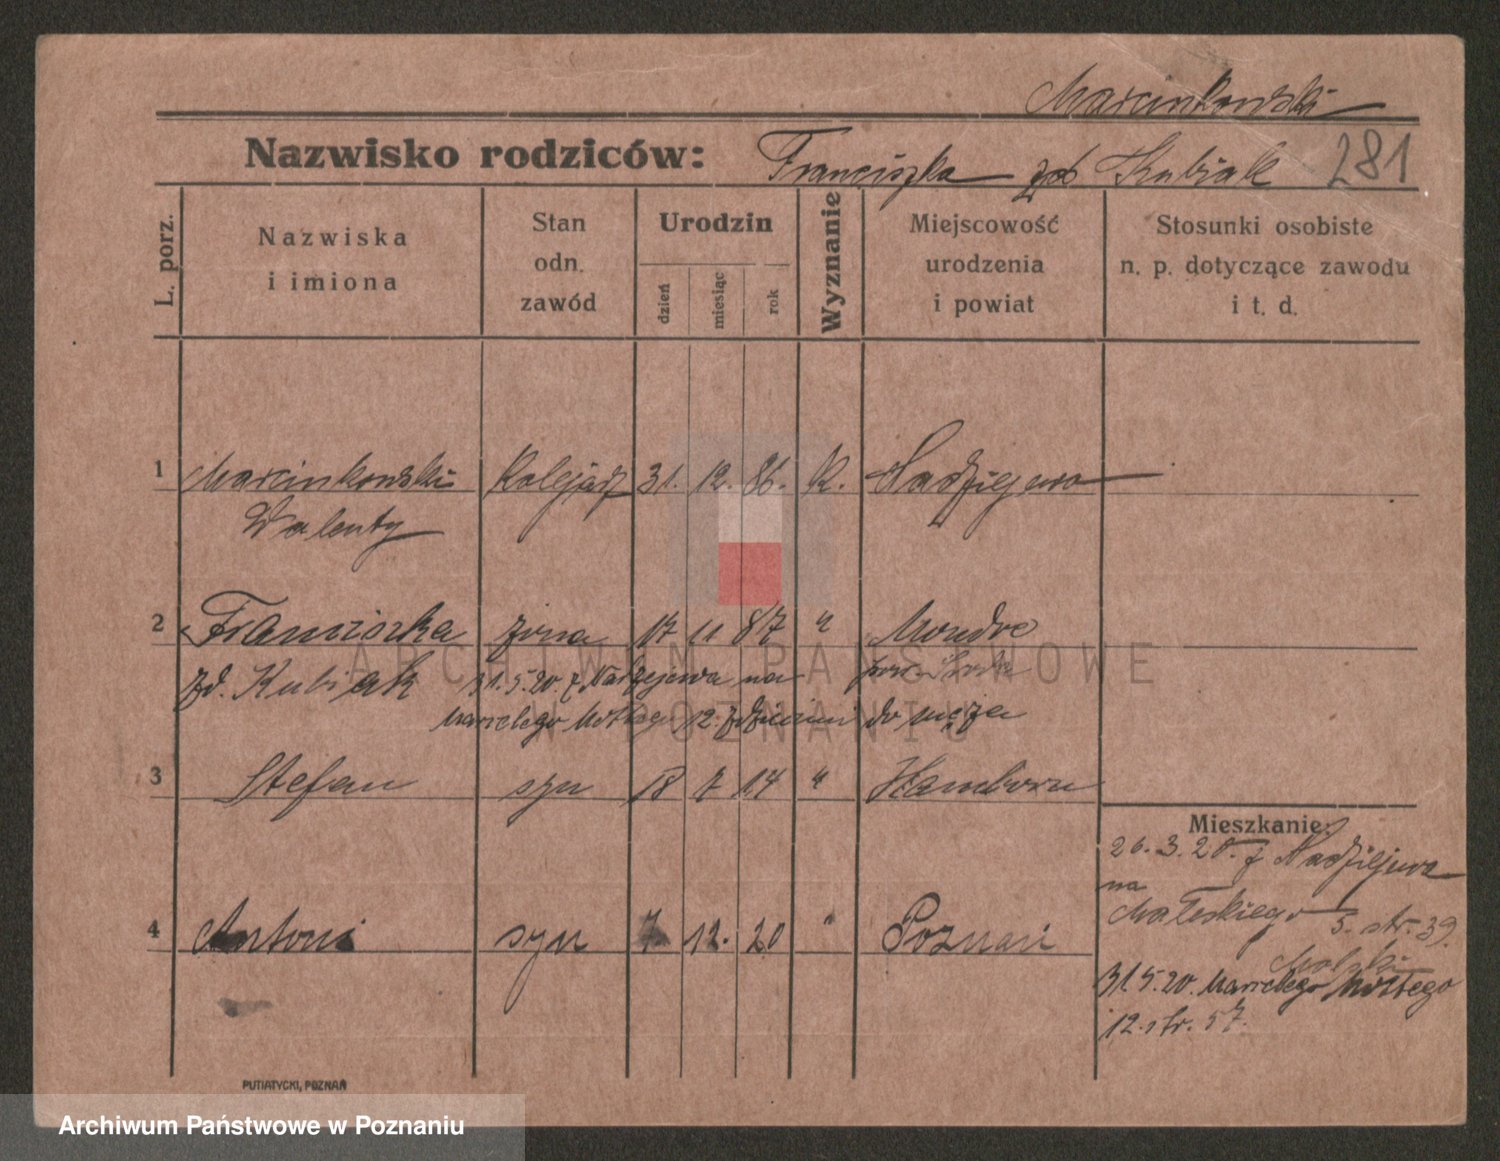 Marcinkowski
Nazwisko rodziców: Franciszka Kubiak 281
L. porz.
Nazwiska
i imiona
Stan
odn.
zawód
Urodzin
dzień
miesiąc
rok
Wyznanie
Miejscowość
urodzenia
i powiat
Stosunki osobiste
n. p. dotyczące zawodu
i t. d.
1 Marcinkowski Kolejarz 31. 12. 86. K. Nadziejewo
Walenty
2 Franciszka żona 17 11 87 " Mondre
zd. Kubiak 31.5.20. z Nadziejewa na pow. Środa
Marcelego Mottego 12. z dziećmi do męża
3 Stefan syn 18 7 14 " Hamborn
Mieszkanie:
26.3.20. z Nadziejewa
na
5. str. 39.
4 Antoni syn 7. 12. 20 " Poznań
31.5.20. Marcelego Mottego
12. str. 57.
PUTIATYCKI, POZNAŃ
ARCHIWUM PAŃSTWOWE
W POZNANIU
Archiwum Państwowe w Poznaniu